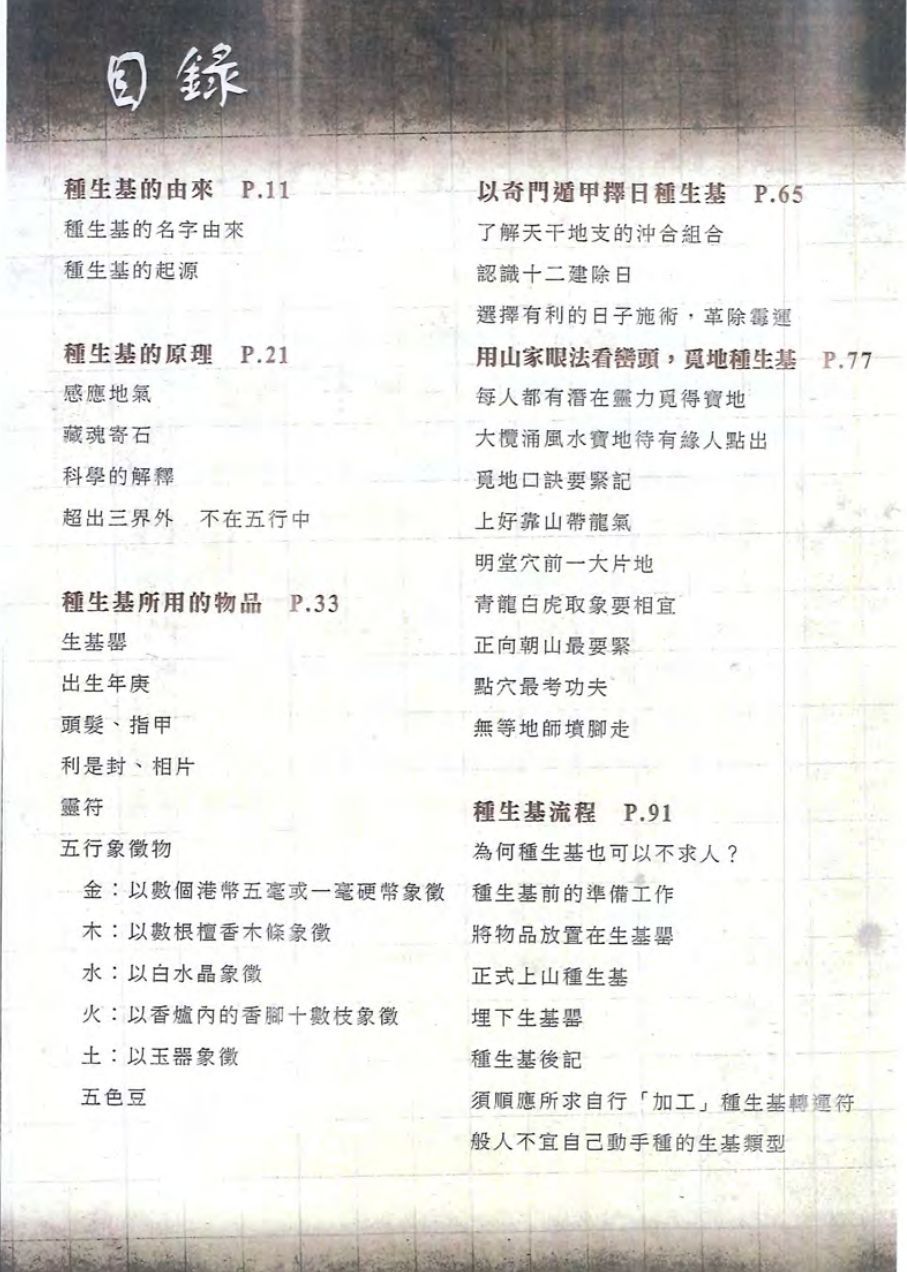 目錄
種生基的由來 P.11
種生基的名字由來
種生基的起源
種生基的原理 P.21
感應地氣
藏魂寄石
科學的解釋
超出三界外 不在五行中
種生基所用的物品 P.33
生基罌
出生年庚
頭髮、指甲
利是封、相片
靈符
五行象徵物
金：以數個港幣五毫或一毫硬幣象徵
木：以數根檀香木條象徵
水：以白水晶象徵
火：以香爐內的香腳十數枝象徵
土：以玉器象徵
五色豆
以奇門遁甲擇日種生基 P.65
了解天干地支的沖合組合
認識十二建除日
選擇有利的日子施術，革除霉運
用山家眼法看巒頭，覓地種生基 P.77
每人都有潛在靈力覓得寶地
大欖涌風水寶地待有緣人點出
覓地口訣要緊記
上好靠山帶龍氣
明堂穴前一大片地
青龍白虎取象要相宜
正向朝山最要緊
點穴最考功夫
無等地師墳腳走
種生基流程 P.91
為何種生基也可以不求人？
種生基前的準備工作
將物品放置在生基罌
正式上山種生基
埋下生基罌
種生基後記
須順應所求自行「加工」種生基轉運符
般人不宜自己動手種的生基類型